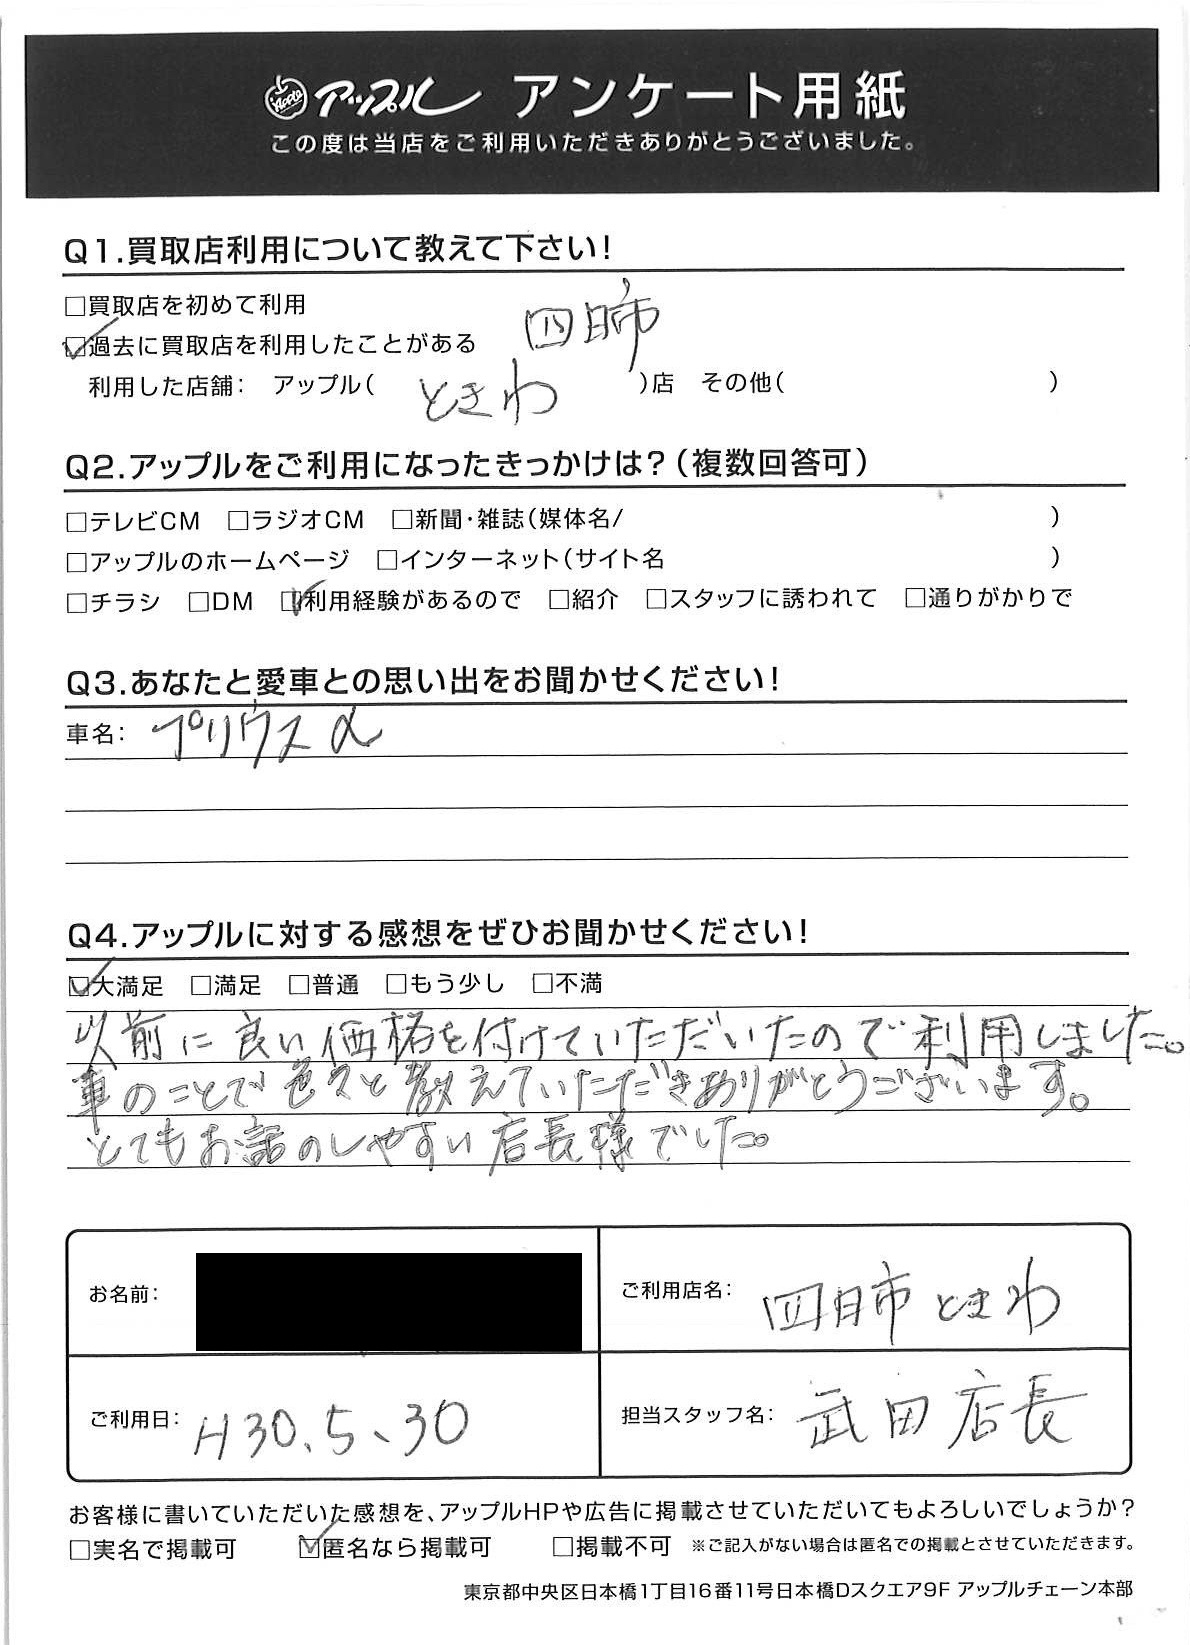 Apple アップル アンケート用紙
この度は当店をご利用いただきありがとうございました。
Q1.買取店利用について教えて下さい!
□買取店を初めて利用
☑過去に買取店を利用したことがある 四日市
利用した店舗: アップル( ときわ )店 その他( )
Q2.アップルをご利用になったきっかけは?(複数回答可)
□テレビCM □ラジオCM □新聞・雑誌(媒体名/ )
□アップルのホームページ □インターネット(サイト名 )
□チラシ □DM ☑利用経験があるので □紹介 □スタッフに誘われて □通りがかりで
Q3.あなたと愛車との思い出をお聞かせください!
車名: プリウスα
Q4.アップルに対する感想をぜひお聞かせください!
☑大満足 □満足 □普通 □もう少し □不満
以前に良い価格を付けていただいたので利用しました。
車のことで色々と教えていただきありがとうございます。
とてもお話のしやすい店長様でした。
お名前:
ご利用店名: 四日市ときわ
ご利用日: H30.5.30
担当スタッフ名: 武田店長
お客様に書いていただいた感想を、アップルHPや広告に掲載させていただいてもよろしいでしょうか?
□実名で掲載可 ☑匿名なら掲載可 □掲載不可 ※ご記入がない場合は匿名での掲載とさせていただきます。
東京都中央区日本橋1丁目16番11号日本橋Dスクエア9F アップルチェーン本部